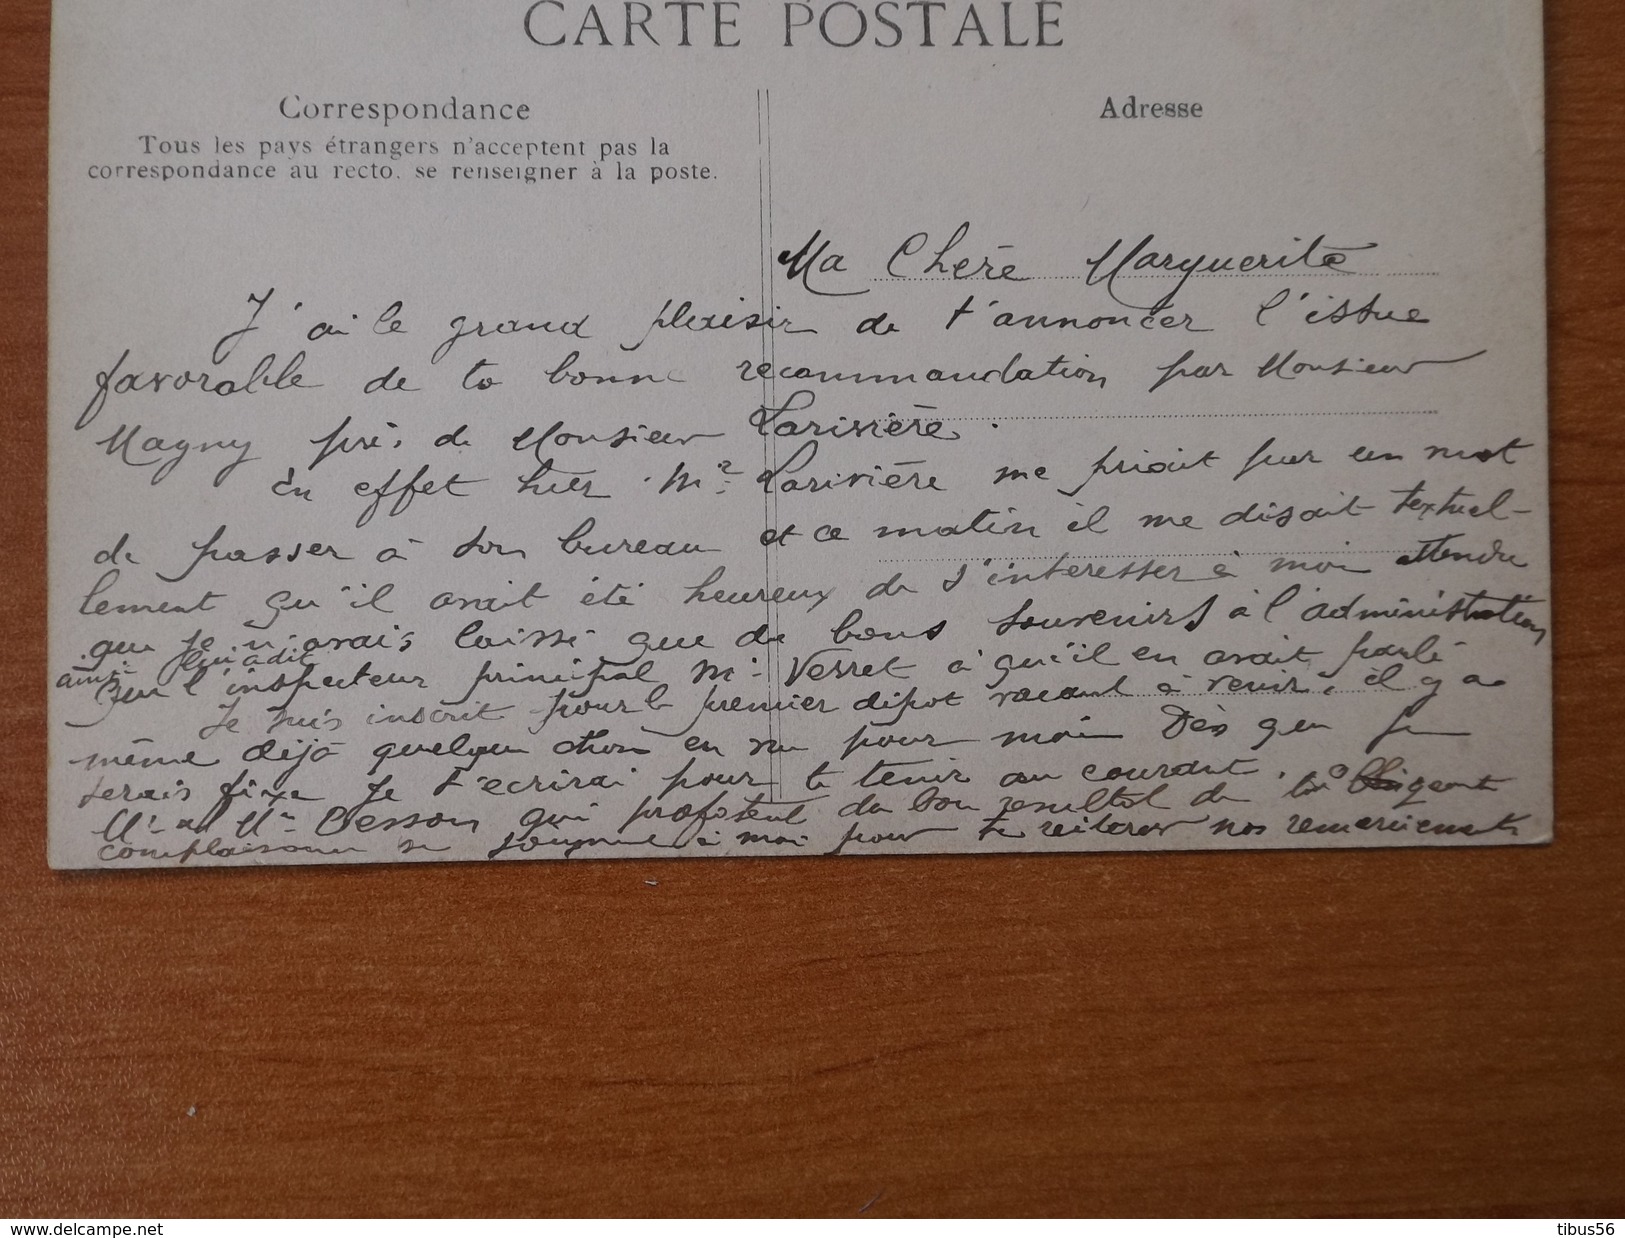 CARTE POSTALE
Correspondance
Tous les pays étrangers n'acceptent pas la
correspondance au recto, se renseigner à la poste.
Adresse
Ma Chère Marguerite
J'ai le grand plaisir de t'annoncer l'issue
favorable de ta bonne recommandation par Monsieur
Magny près de Monsieur Larivière.
En effet hier Mr Larivière me priait par un mot
de passer à son bureau et ce matin il me disait textuel-
lement qu'il avait été heureux de s'intéresser à moi attendu
que je n'avais laissé que de bons souvenirs à l'administration
ainsi que lui a dit l'inspecteur principal Mr Verret à qui il en avait parlé
Je suis inscrit pour le premier dépot vacant à venir, il y a
même déjà quelque chose en vue pour moi Dès que je
serais fixe je t'écrirai pour te tenir au courant.
Mr et Me Besson qui profitent du bon resultat de ta obligeante
complaisance se joignent à moi pour te réiterer nos remerciements
delcampe.net
tibus56